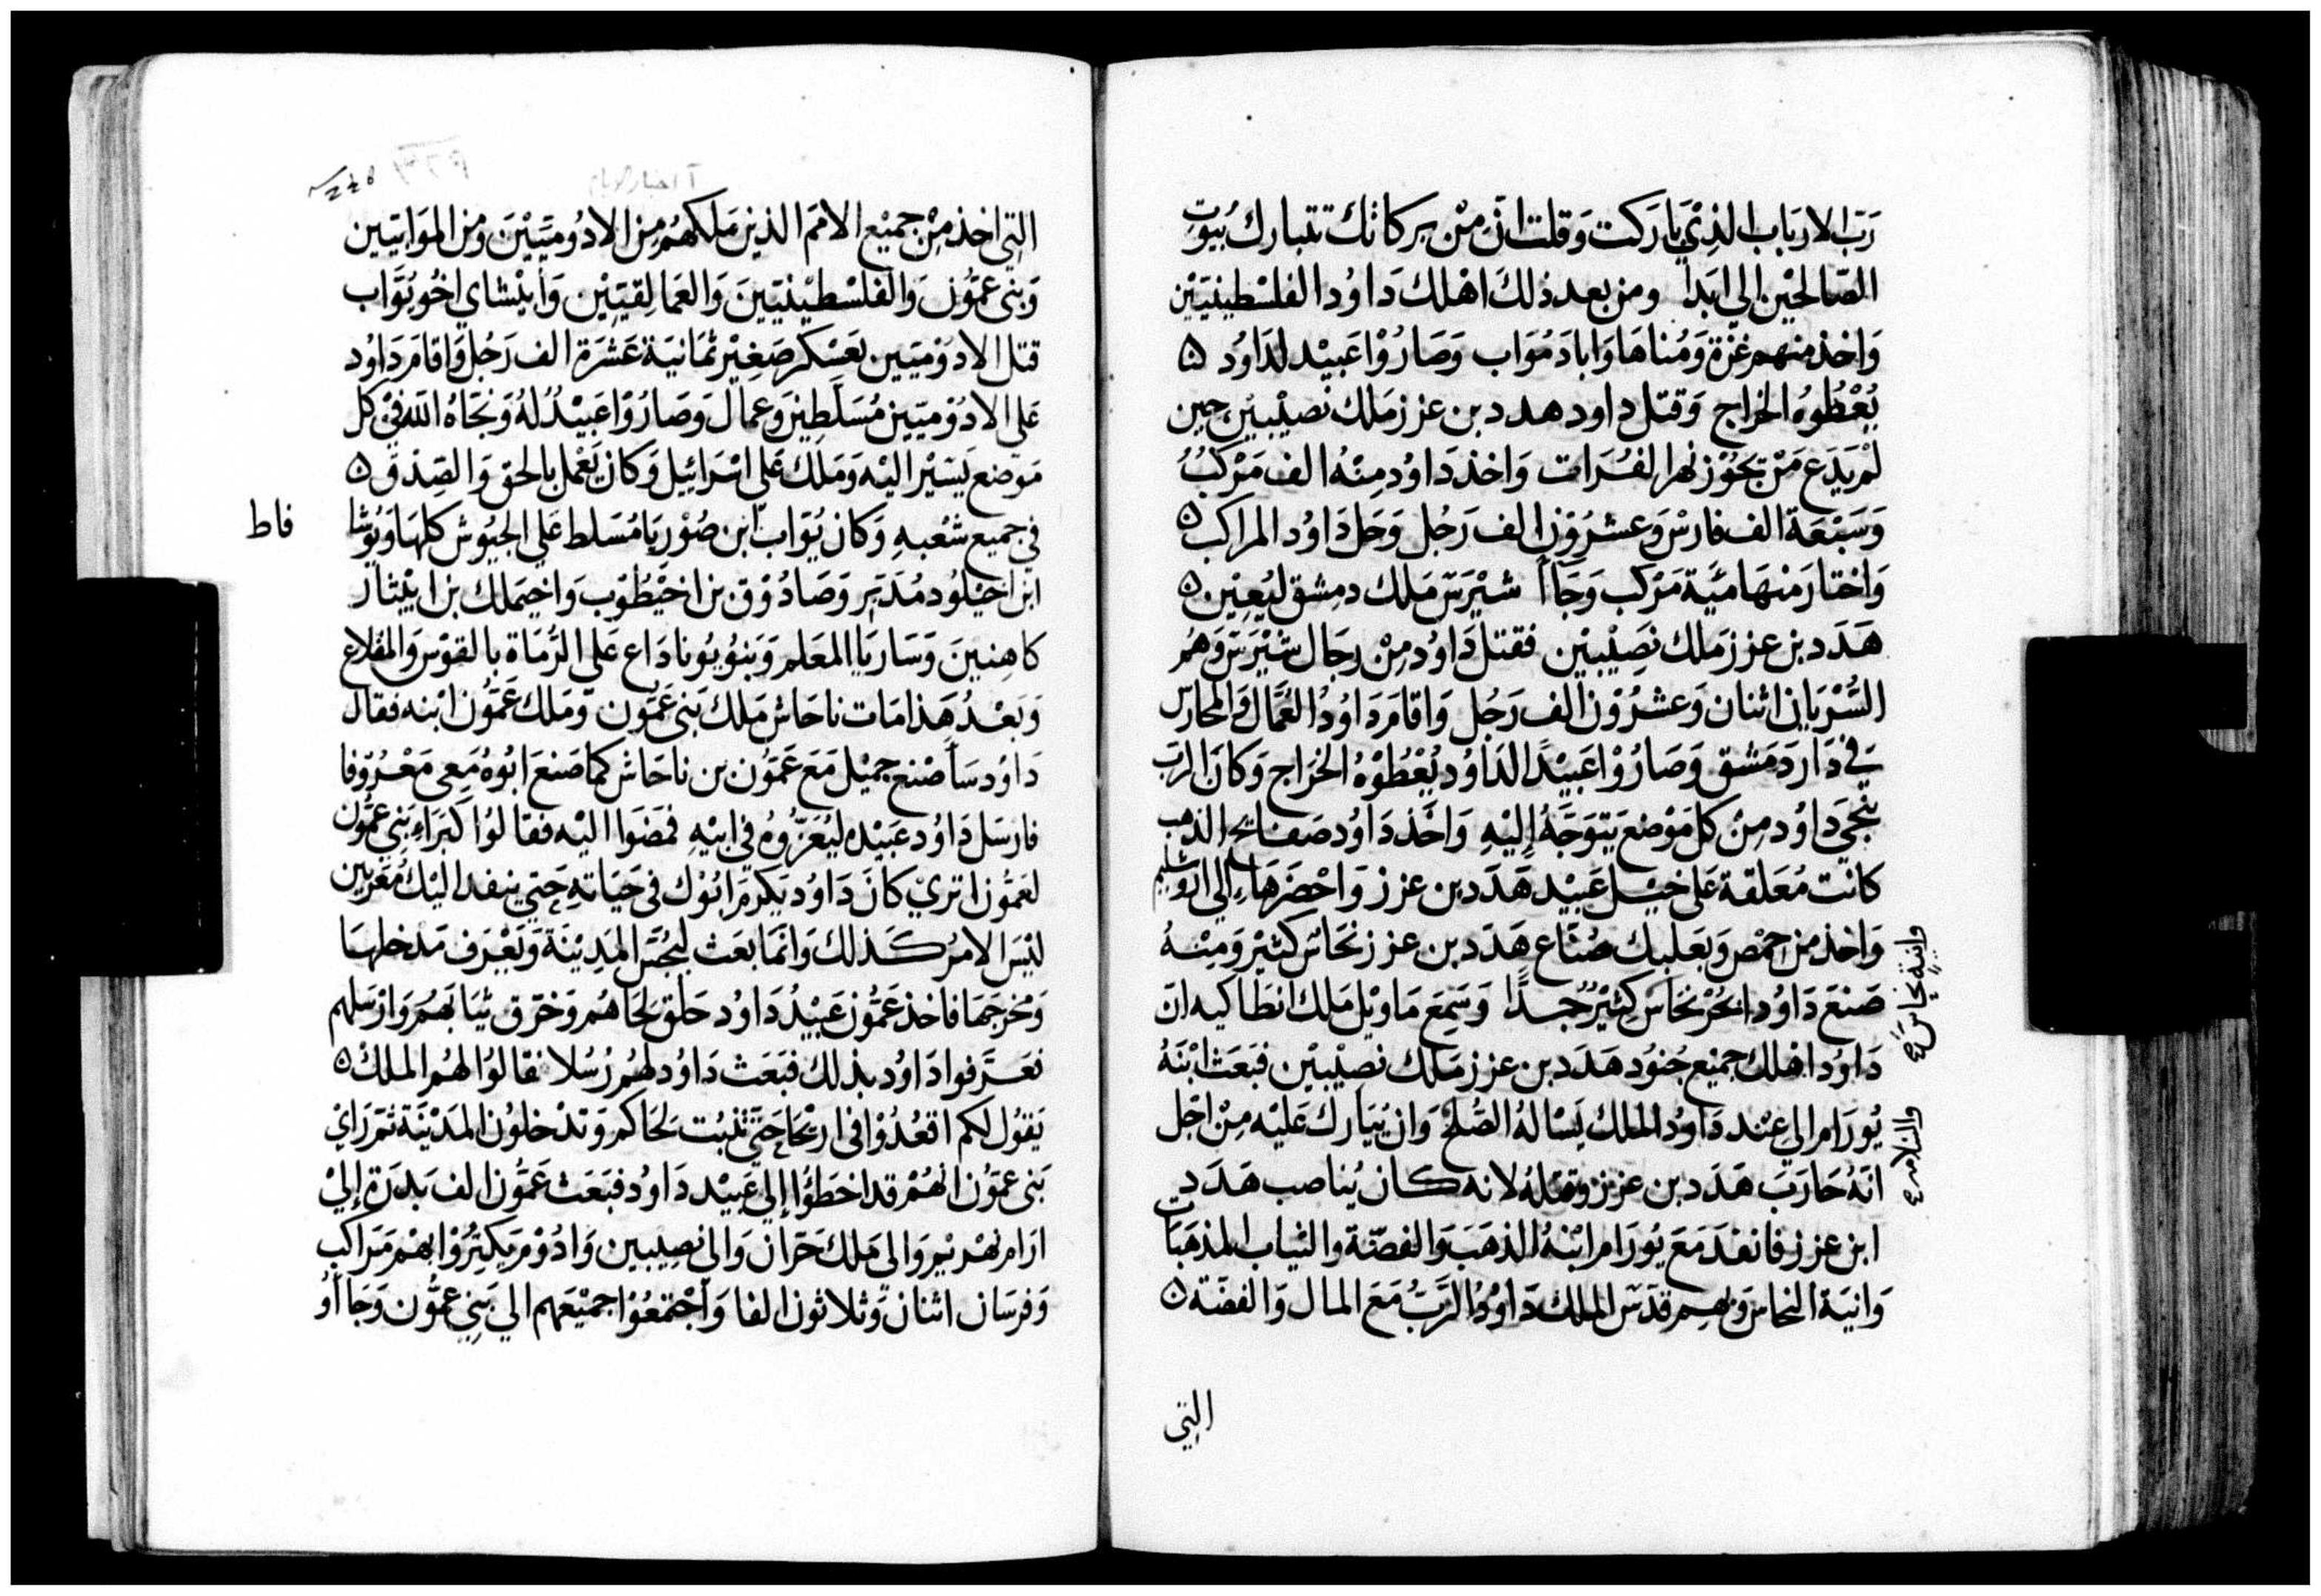 رَبّ الارباب الذِي بَارَكت وَقلت ان مِنْ بركاتك تتبارك بُيوُت
الصّالحِيْن الي ابَدا ومن بعد ذلكَ اهْلك دَاوُد الفلسْطِينيّيْن
وَاخذ منهم غزّة وَمُناهَا وَاباد مُوَاب وَصَارُوْا عَبيْد لدَاوُد ۵
يُعْطُوهُ الخراج وَقتل داود هدد بن عزز مَلك نصيْبيْن حين
لمْ يَدَع مَنْ يجُوْز نهر الفُرَات وَاخذ دَاوُد مِنْهُ الف مَرْكبُ
وَسَبْعَة الف فارسْ وَعشرُوْن الف رَجُل وَحل دَاوُد المراكب ۵
وَاختار منهَا مَيَّة مَرْكب وَجَاأ شيْرَسّ مَلك دمِشق ليُعِيْن ۵
هَدَد بن عزز مَلك نصِيْبيْن فقتل دَاوُد مِنْ رجَال شيْرَسّ وَهُم
السُّرْيَاني اثنان وَعشرُوْن الف رَجُل وَاقامَ دَاوُد العُمَّال وَالمحَارسّ
في دَار دَمَشق وَصَارُوْا عَبيْدًا لدَاوُد يُعْطُوْهُ الخرَاج وَكانَ الربّ
ينجي دَاوُد مِنْ كل مَوْضع يَتوَجَّهُ إليْهِ وَاخَذ دَاوُد صَفايح الذهب
كانت مُعَلقة عَلي خيْل عَبيْد هَدَد بن عزز وَاحْضَرَهَا إلي اورشليم
وَاخذ من حمْص وَبعَلبك صُنّاع هَدَد بن عزز نحَاسّ كثيْر وَمِنْهُ
صَنعَ دَاوُد ابحُرْ نحَاسّ كثيْرُ جدًا وَسَمِعَ مَاويْل مَلك انطَاكيه انّ
دَاوُد اهْلك جميْع جُنوُد هَدَد بن عزز مَلك نصِيْبيْن فبَعَث ابْنَهُ
يُورَام الي عِنْد دَاوُد الملك يَسْالهُ الصّلحْ وَان يُبَارك عَليْه مِنْ اجْل
انّهُ حَارَبَ هَدَد بن عزز وقتلهُ لانه كان يُناصب هَدَد
ابن عزز فانفدَ مَعَ يُورَام ابْنهُ الذهَبَ وَالفضّة والثياب المذهَبَات
وَانيَة النحاسّ وَبهِم قدَسّ الملك دَاوُدُ الرَّبُّ مَعَ المال وَالفضّة ۵
وانية نحاسّ
والسّلام
التِي
آ اخبار الايام
التِي اخذ مِنْ جميْع الامَم الذين مَلكهُم مِن الادُوميّيْنَ وَمن المَوَابيّين
وَبَني عَمُّون وَالفلسْطيْنيّينَ وَالعَمَالِقيّيْن وَأَبيْشاي اخوُ يُوَاب
قتل الادوْميّين بعَسْكر صَغِيْر ثمَانيَة عَشرَة الف رَجُل وَاقامَ دَاوُد
عَلي الادُوْميّين مُسَلّطِين وَعمال وَصَارُوْا عَبيْدُ لهُ وَنجّاهُ اللّه في كل
مَوضع يَسيْر اليْه وَمَلك عَلي اسْرَائيل وَكان يَعْمَل بالحَق وَالصّدق ۵
في جميع شعْبهِ وَكان يُوَاب ابن صُوْريَا مُسَلط عَلي الجيُوش كلهَا وَيُوشا
فاط
ابن اخيلوُد مُدَبّر وَصَادُوْق بن اخيْطُوب وَاخيمَلك بن ابيْثار
كاهِنينَ وَسَاريَا المعَلم وَبَنُو يُونا دَاع عَلي الرُّمَاة بالقوْسّ وَالمقلاع
وَبَعْدُ هَذا مَات ناحَاش مَلك بَني عَمُّون وَمَلك عَمُّون ابْنه فقال
دَاوُد سَأصْنع جميْل مَعَ عَمُّون بن ناحَاش كما صَنعَ ابُوهُ مَعي مَعْرُوفا
فارسَل دَاوُد عَبيْده ليُعَزُّوهُ في ابيْهِ فمَضَوا اليْه فقالوُا كبرَاءِ بَني عمُّون
لعَمُّون اتري كانَ دَاوُد يَكرمَ ابُوْك في حَيَاتهِ حَتي ينفد اليْك مُعَزّين
ليْسَ الامرُ كذلك وَانمَا بعَث ليُجسّ المَدِيْنَة وَيَعْرَف مَدخلهَا
وَمخرَجَهَا فاخذ عَمُّون عَبيْدُ دَاوُد حَلق لحَاهُم وَخرَق ثيَابَهُم وَارْسَلهم
فعَرَّفوا دَاوُد بذلك فبَعَث دَاوُد لهُم رُسُلا فقالوُا لهُم الملكْ ۵
يَقوُل لكم اقعُدُوْا في ارْيحَا حَتيّ تنبُت لحَاكم وَتدْخلوُن المَدْيْنَة ثمّ رَايْ
بَني عمُّون انّهُمْ قد اخطَؤُا إلي عَبيْد دَاوُد فبَعَث عَمُّون الف بَدرَة إليْ
ارَام نهْرَيم وَالي مَلك حَرّان وَالي نصِيبين وَادُوْم يَكتِرُوْا بهْم مَرَاكب
وَفرسَان اثنان وَثلاثون الفا وَاجْتمَعُوْا جميْعَهم الي بَني عَمُّون وَجَاأوُ